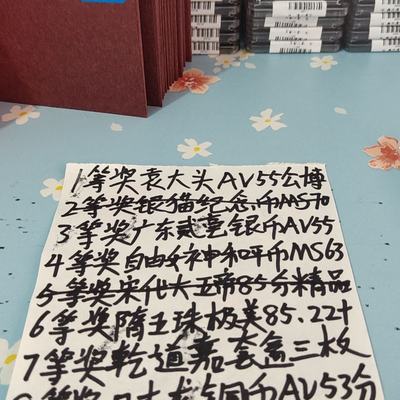 1等奖袁大头AV55公博
2等奖银猫纪念币MS70
3等奖广东贰毫银币AV55
4等奖自由女神和平币MS63
5等奖宋代大五帝85分精品
6等奖隋五珠极美85.22+
7等奖乾道嘉套盒三枚
等奖 币AV53分